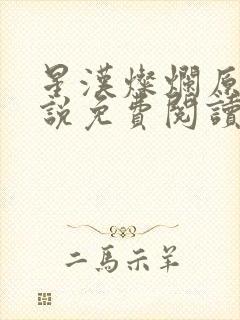 星漢燦爛原
說免費閱讀
二馬示羊